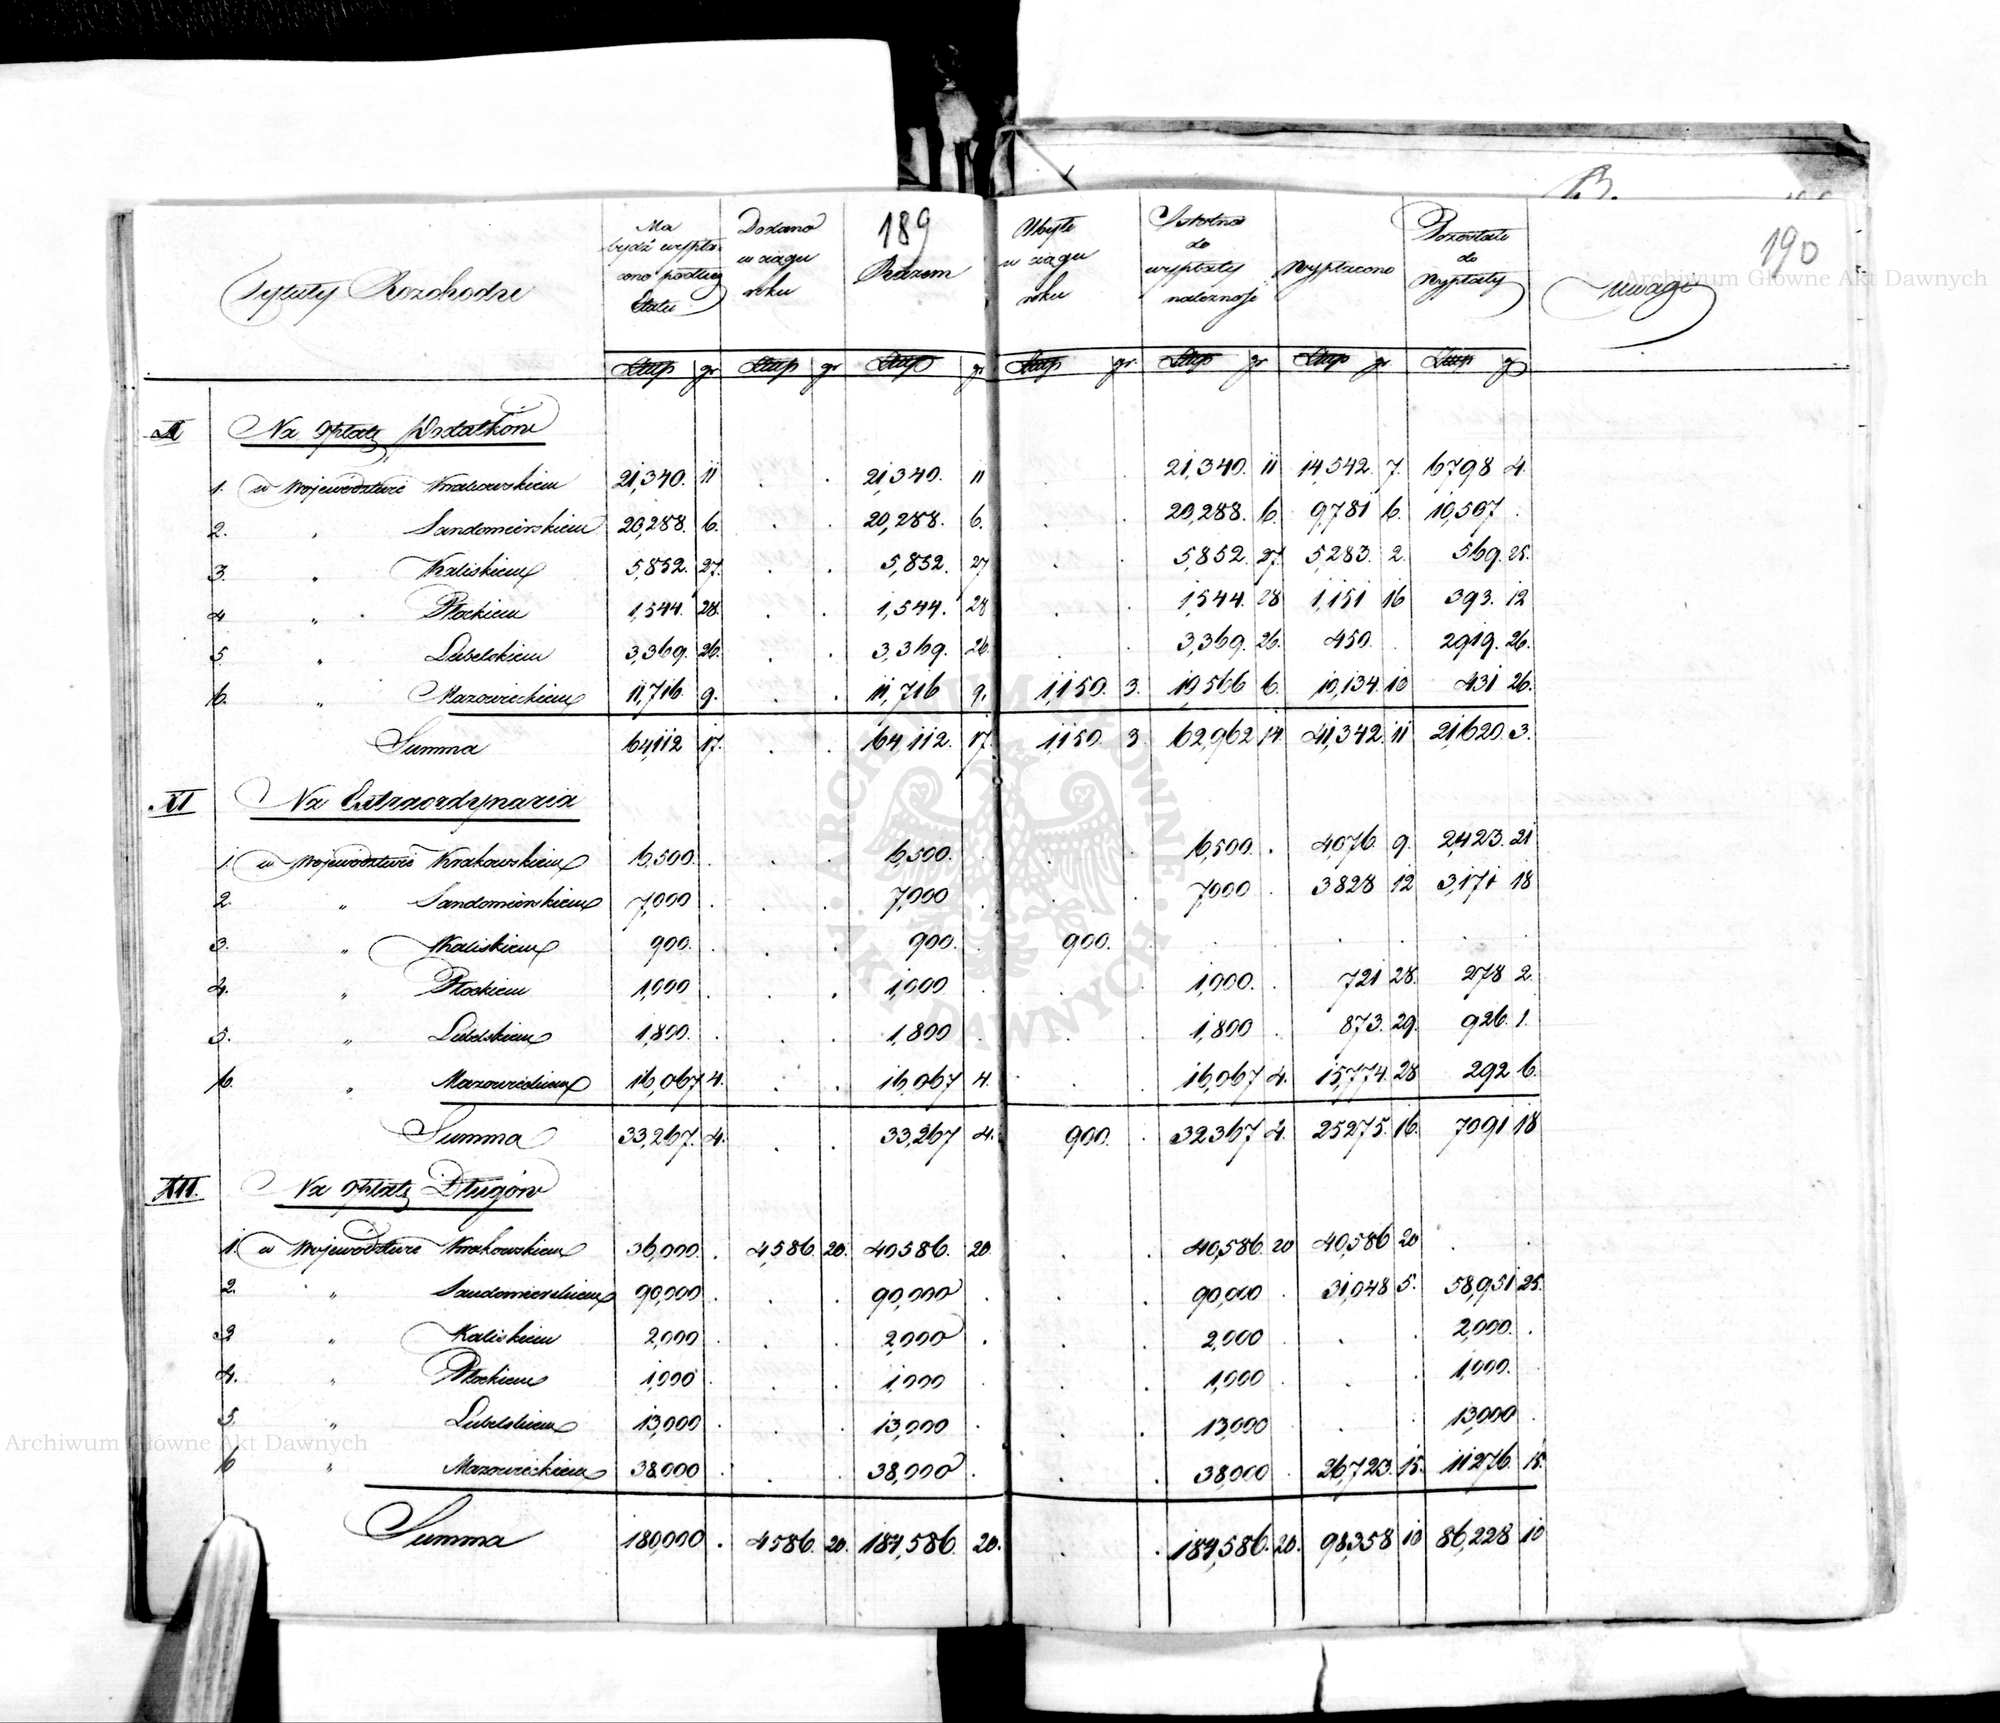 189
190
Tytuły Rozchodu
Ma bydź wypłacono podług Etatu
Dodano w ciągu roku
Razem
Ubyło w ciągu roku
Istotna do wypłaty należność
Wypłacono
Pozostało do Wypłaty
Uwagi
Złtp gr Złtp gr Złtp gr Złtp gr Złtp gr Złtp gr Złtp gr
X Na opłatę Podatków
1. w Województwie Krakowskiem 21,340. 11 . . 21,340. 11 . . 21,340. 11 14,542. 7. 6798 4.
2. " Sandomierskiem 20,288. 6. . . 20,288. 6. . . 20,288. 6. 9,781 6. 10,507 .
3. " Kaliskiem 5,852. 27. . . 5,852. 27 . . 5,852. 27. 5,283. 2. 569. 25.
4 " Płockiem 1,544. 28. . . 1,544. 28 . . 1,544. 28 1,151 16 393. 12
5. " Lubelskiem 3,369. 26. . . 3,369. 26 . . 3,369. 26. 450. . 2919. 26.
6. " Mazowieckiem 11,716. 9. . . 11,716 9. 1,150. 3. 10,566 6. 10,134. 10 431 26.
Summa 64,112 17. . . 64,112. 17. 1,150. 3 62,962 14 41,342. 11 21,620. 3.
XI Na Extraordynaria
1. w Województwie Krakowskiem 6,500. . . . 6,500. . . . 6,500. . 4,076. 9. 2,423. 21
2. " Sandomierskiem 7,000 . . . 7,000 . . . 7,000 . 3828 12 3,171 18
3. " Kaliskiem 900. . . . 900. . 900. . . . . . .
4. " Płockiem 1,000 . . . 1,000 . . . 1,000. . 721 28. 278 2.
5. " Lubelskiem 1,800. . . . 1,800 . . . 1,800 . 873. 29. 926. 1.
6. " Mazowieckiem 16,067 4. . . 16,067 4. . . 16,067 4. 15,774. 28 292 6.
Summa 33,267. 4. . . 33,267 4. 900. . 32367 4. 25275. 16. 7091 18
XII. Na opłatę Długów
1. w Województwie Krakowskiem 36,000. . 4,586. 20. 40,586. 20. . . 40,586. 20 40,586 20 . .
2. " Sandomierskiem 90,000 . . . 90,000 . . . 90,000 . 31,048 5. 58,951 25.
3 " Kaliskiem 2,000 . . . 2,000 . . . 2,000 . . . 2,000. .
4. " Płockiem 1,000 . . . 1,000 . . . 1,000 . . . 1,000. .
5. " Lubelskiem 13,000 . . . 13,000 . . . 13,000 . . . 13,000 .
6 " Mazowieckiem 38,000 . . . 38,000 . . . 38,000 . 26,723. 15. 11276. 15.
Summa 180,000 . 4586. 20. 184,586. 20. . . 184,586. 20. 98,358 10 86,228 10
Archiwum Główne Akt Dawnych
Archiwum Główne Akt Dawnych
ARCHIWUM GŁÓWNE AKT DAWNYCH